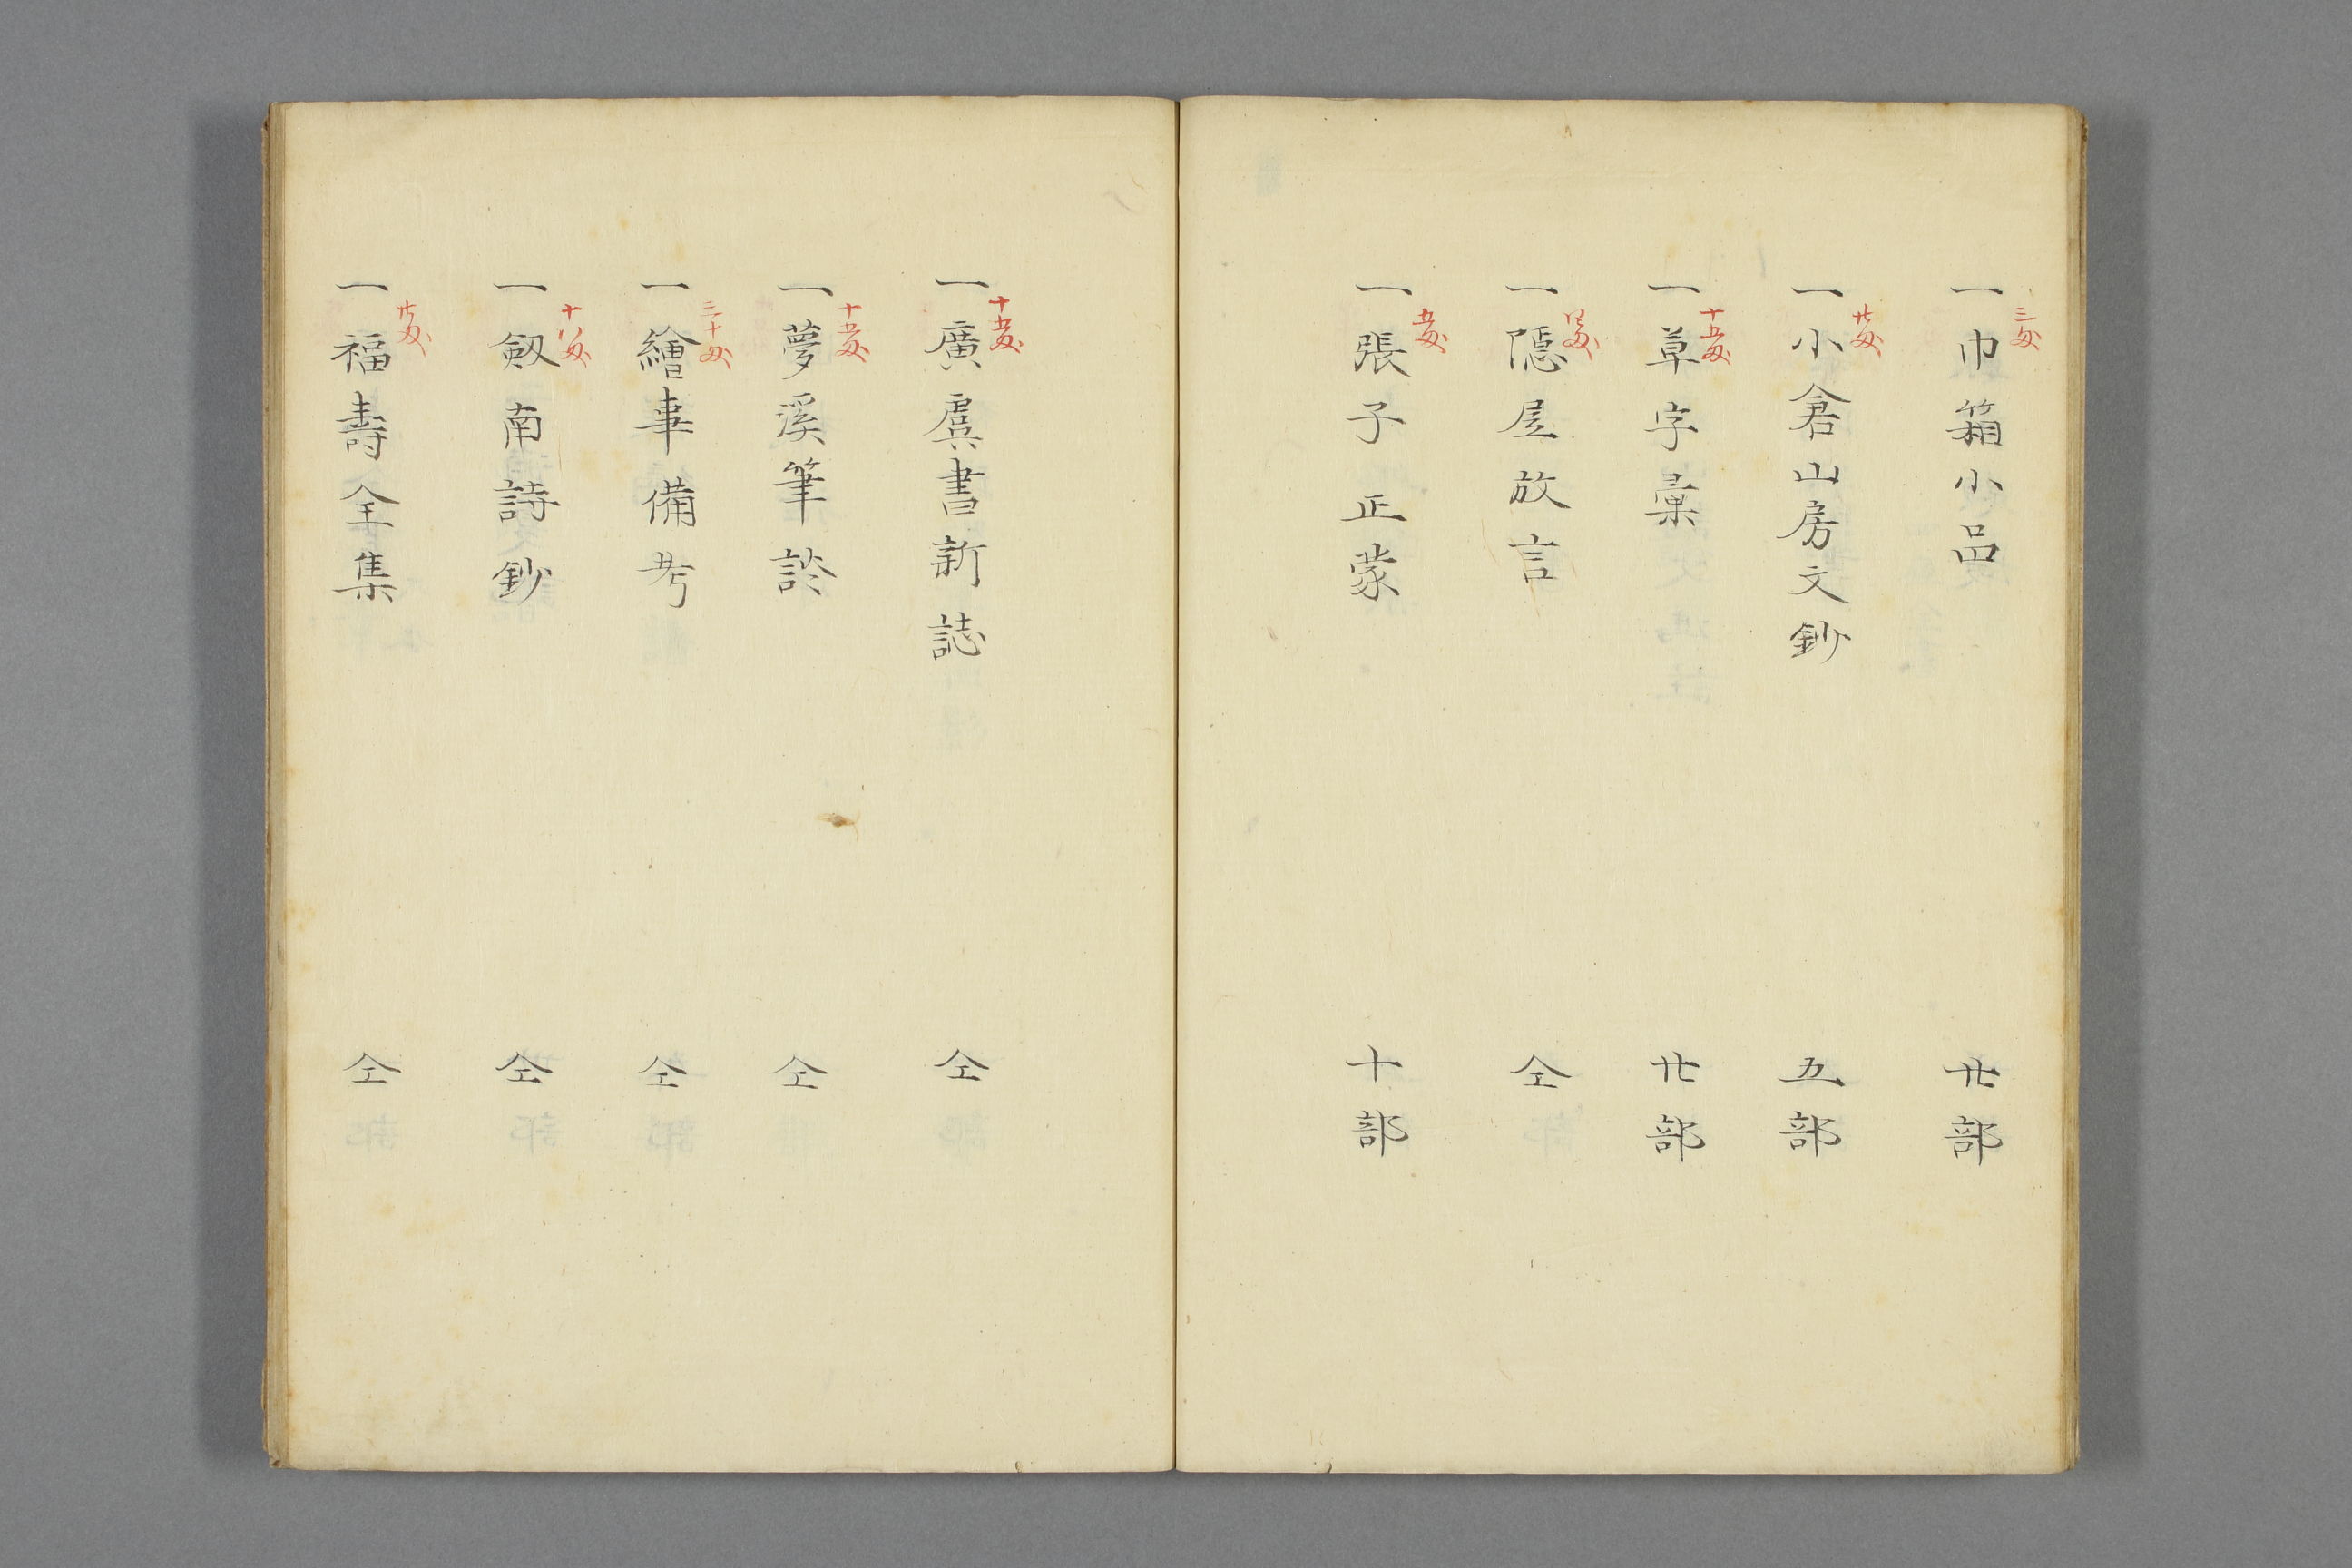 三匁
一巾箱小品 廿部
廿匁
一小倉山房文鈔 五部
十五匁
一草字彙 廿部
一隱居放言 仝
五匁
一張子正蒙 十部
十五匁
一廣虞書新誌 仝
十五匁
一夢溪筆談 仝
三十匁
一繪事備考 仝
十八匁
一劔南詩鈔 仝
廿匁
一福壽全集 仝